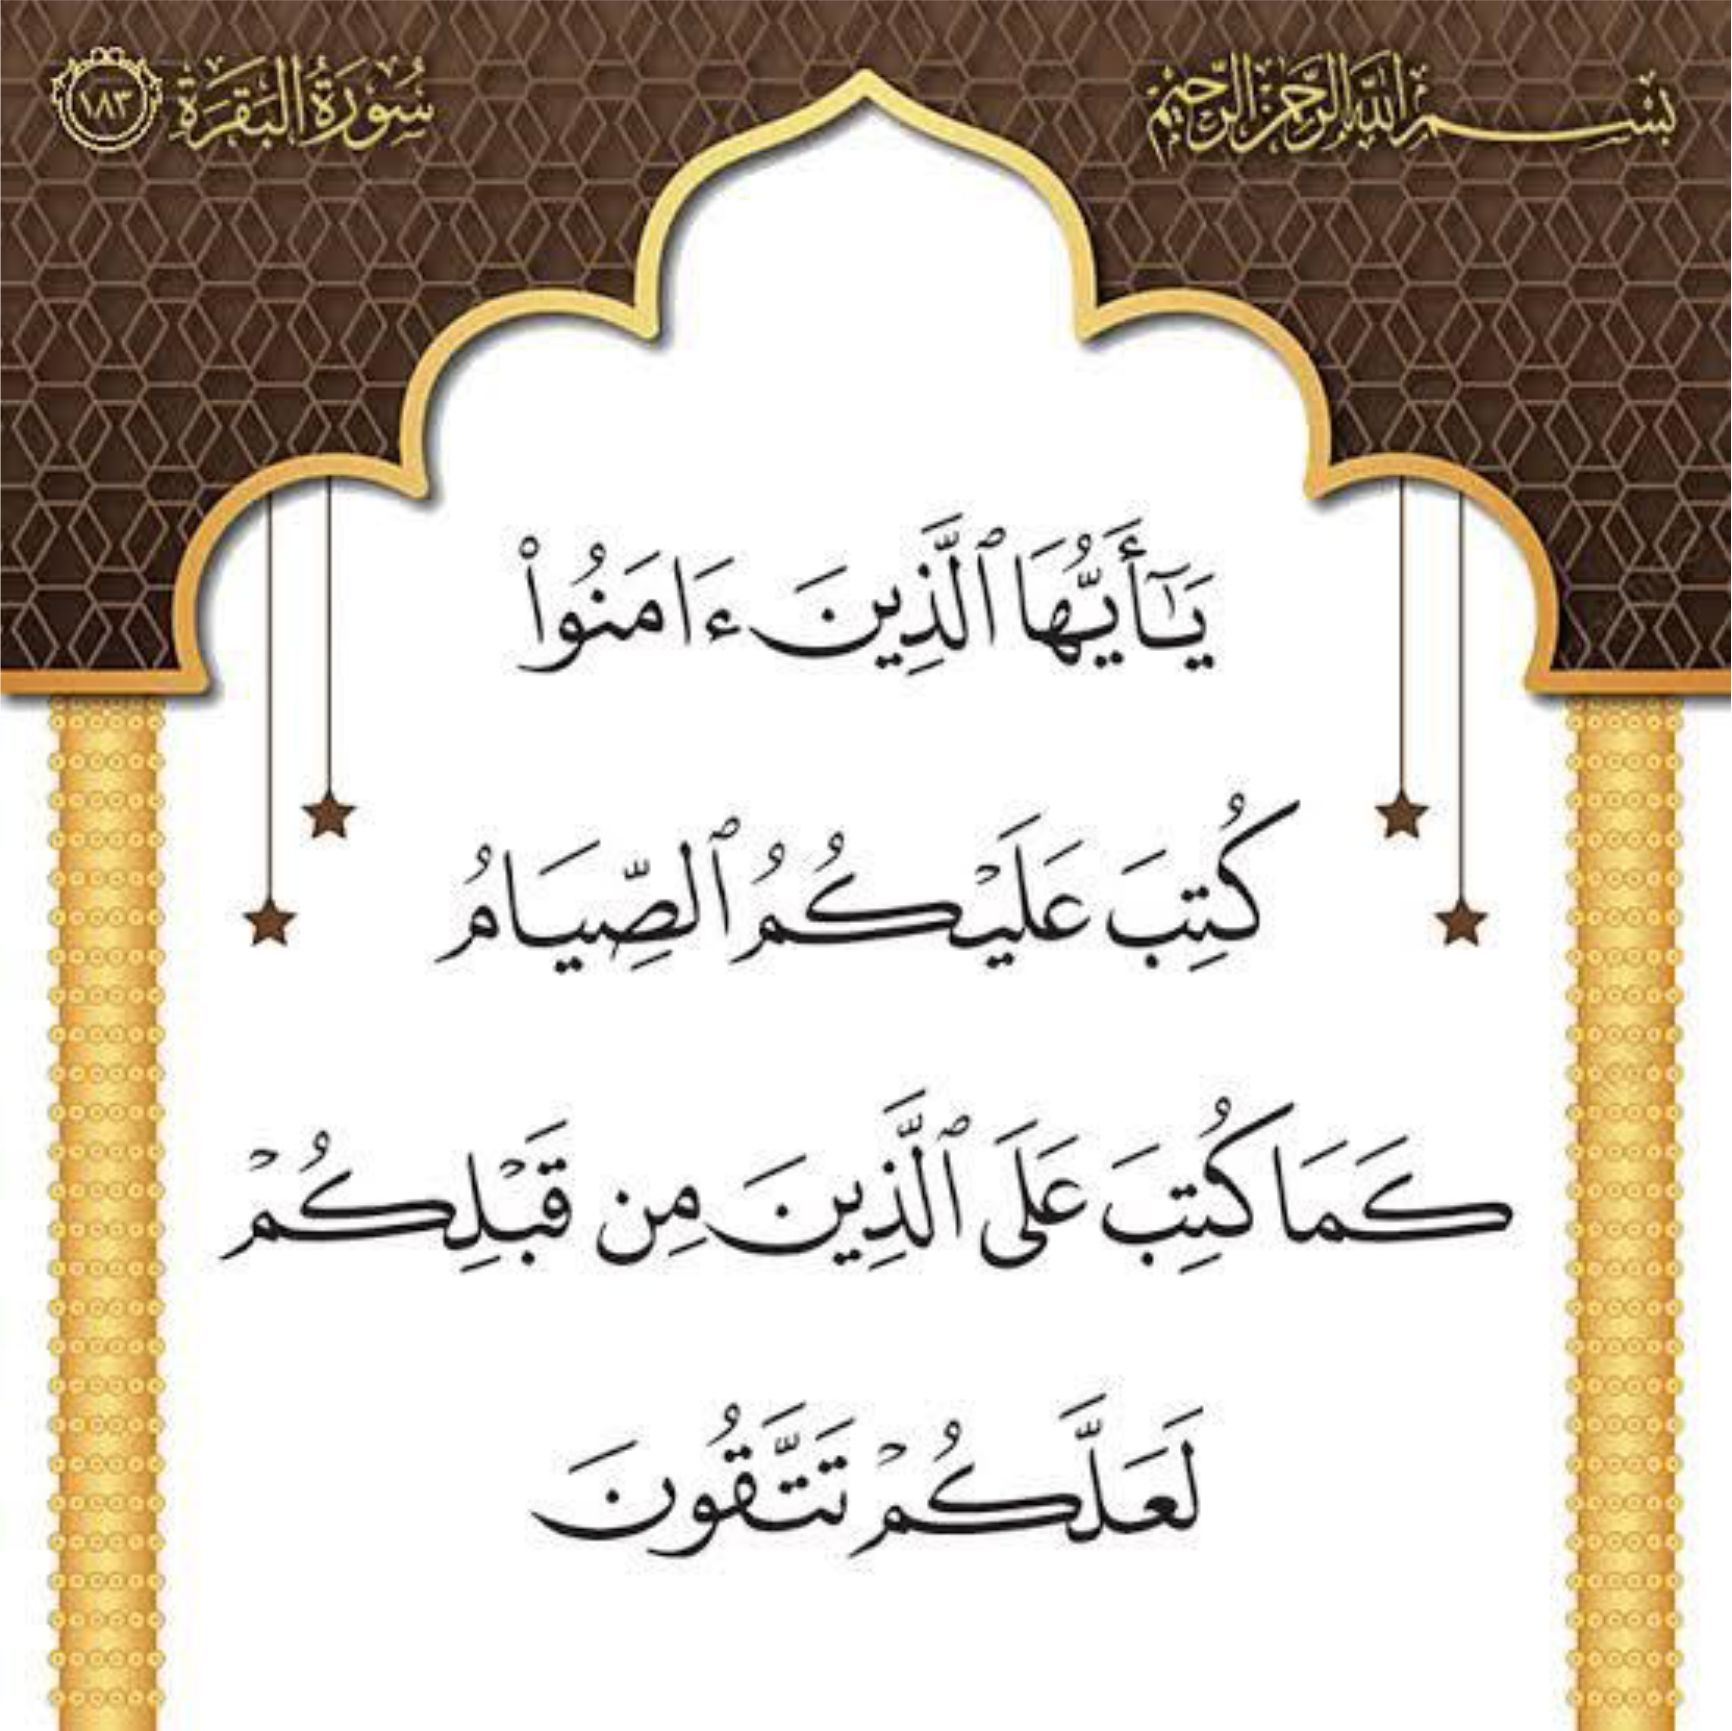 بِسْمِ اللَّهِ الرَّحْمَنِ الرَّحِيمِ
سُورَةُ البَقَرَةِ ١٨٣
يَـٰٓأَيُّهَا ٱلَّذِينَ ءَامَنُوا۟
كُتِبَ عَلَيْكُمُ ٱلصِّيَامُ
كَمَا كُتِبَ عَلَى ٱلَّذِينَ مِن قَبْلِكُمْ
لَعَلَّكُمْ تَتَّقُونَ